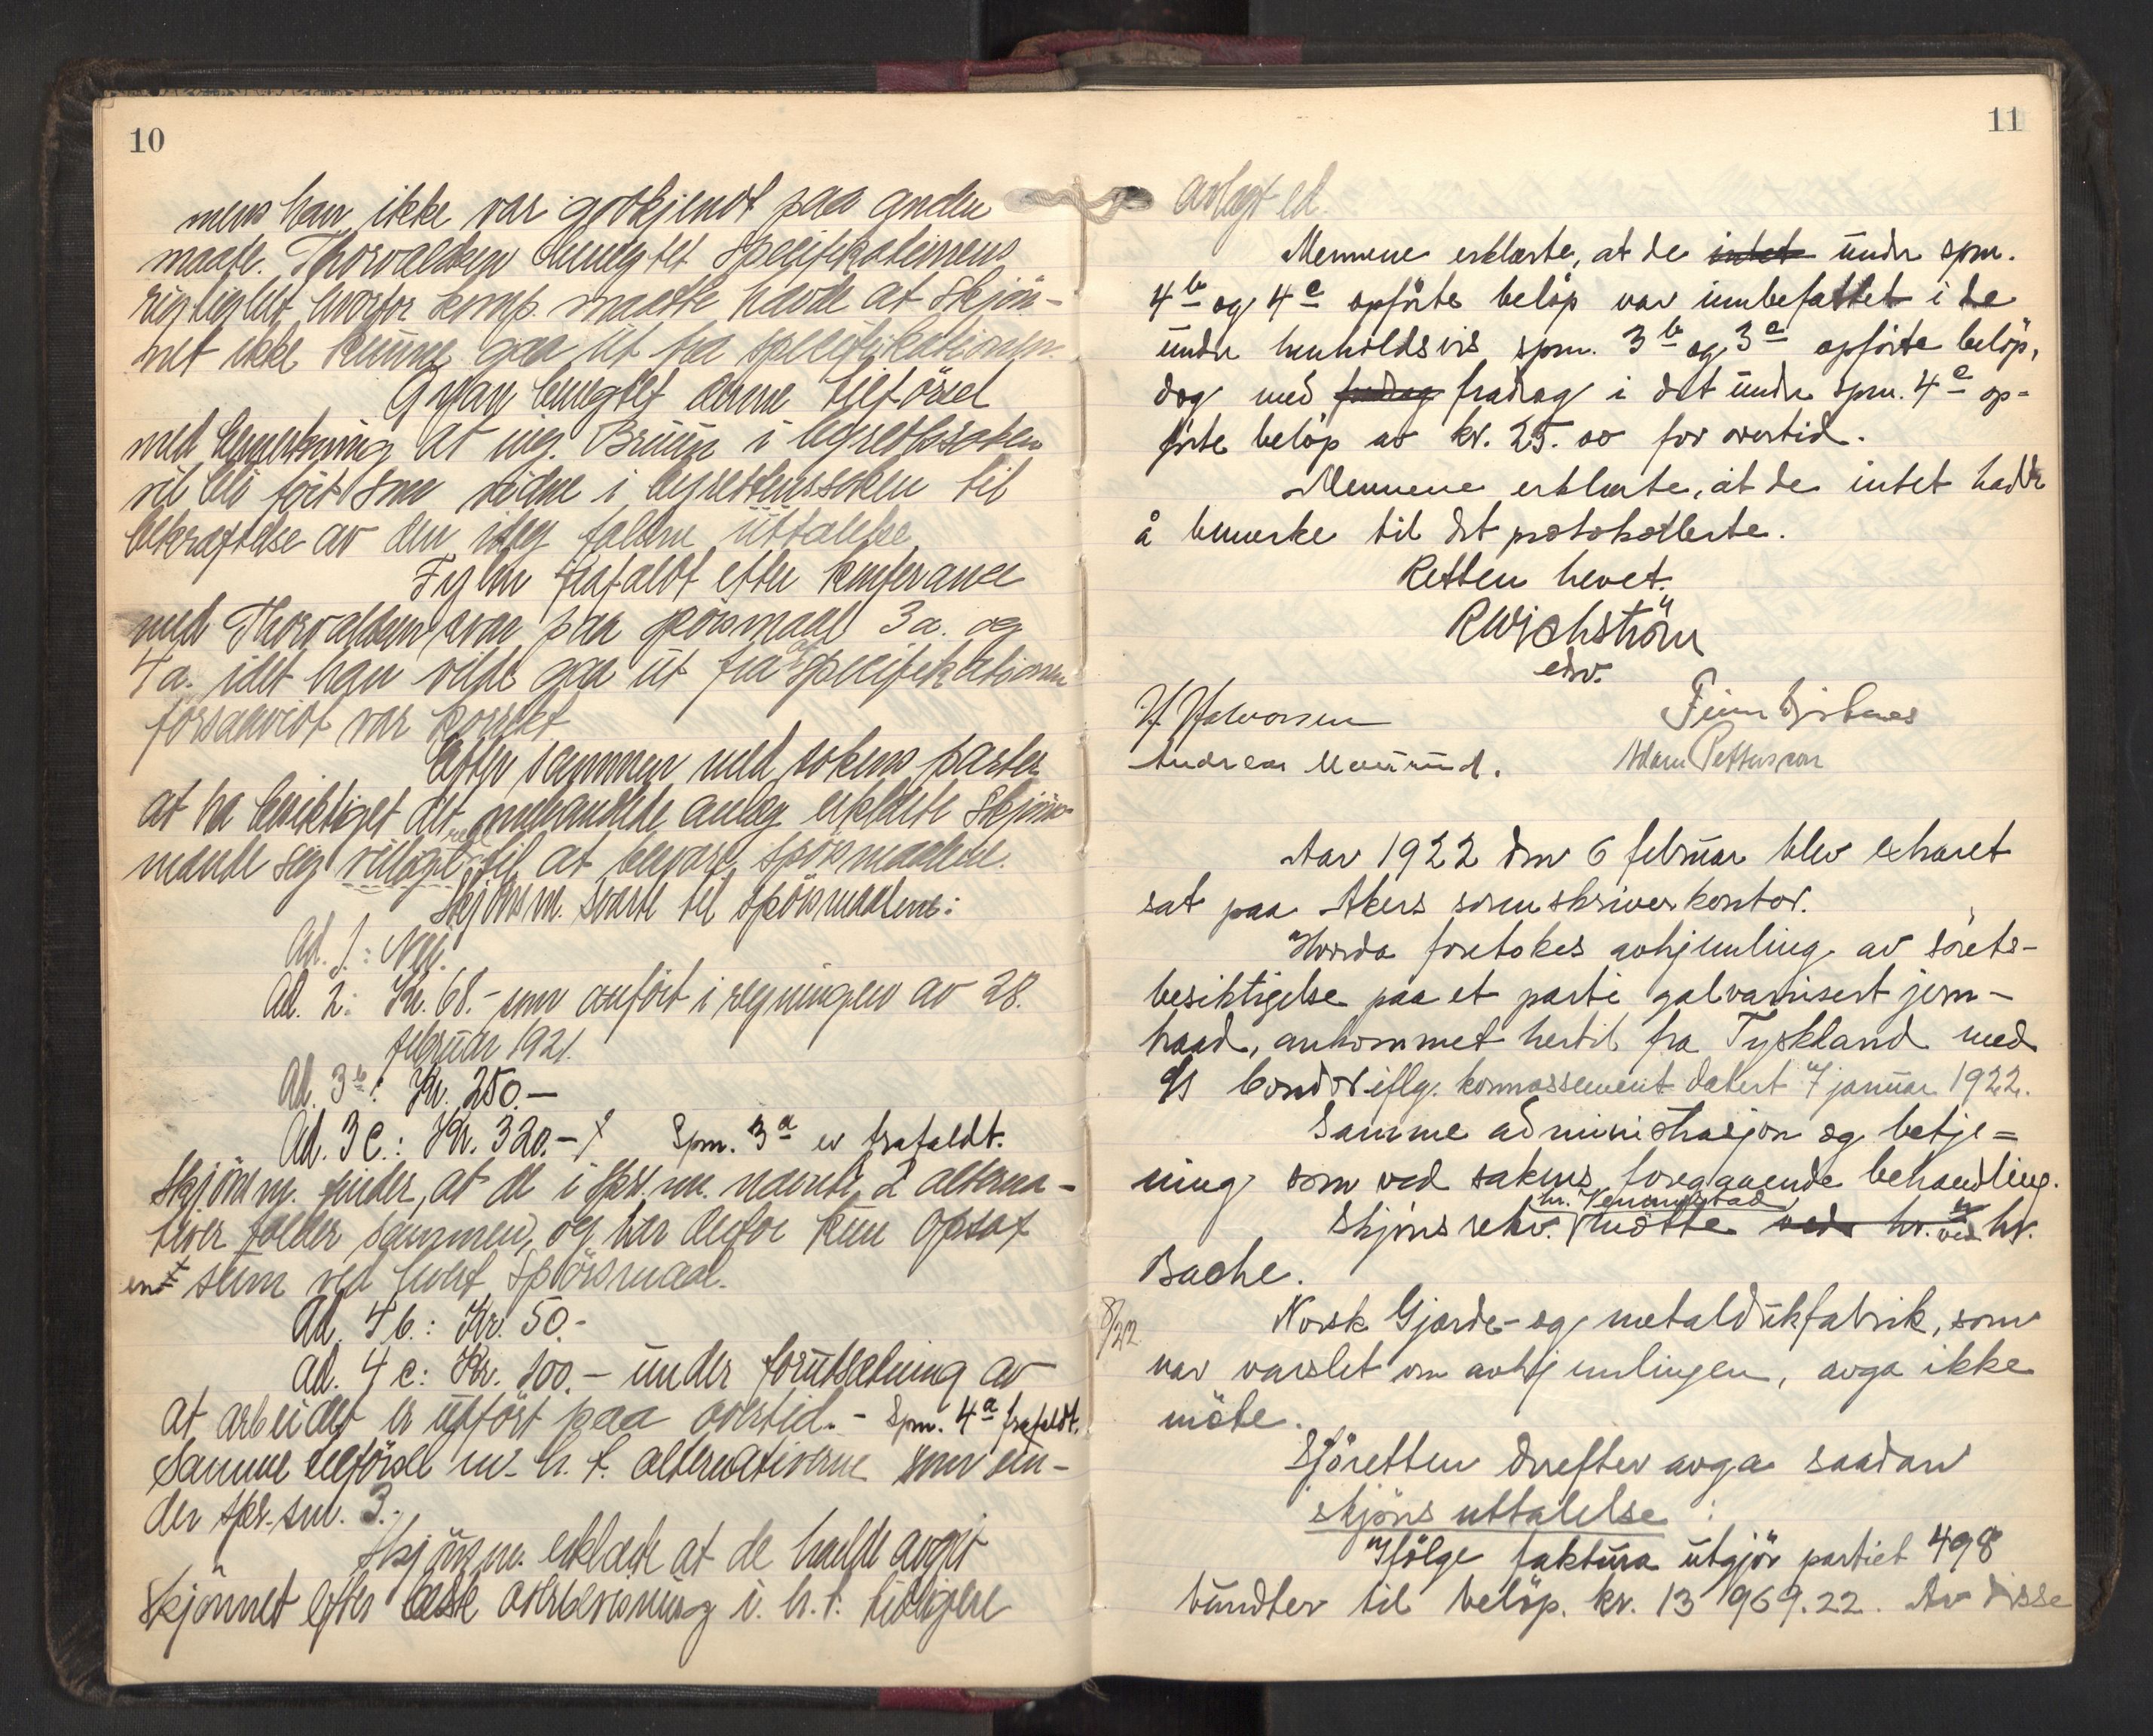 10
mens han ikke var godkjendt paa anden
maate. Thorvaldsen benegtet specifikationens
rigtighet hvorfor komp. maatte hævde at skjøn-
net ikke kunne gaa ut fra specifikationen.
benegtet denne tilførsel
med bemerkning at ing. Bruun i lagrettessaken
vil bli ført som vidne i lagrettessaken til
bekræftelse av den idag faldne uttalelse.
frafaldt efter konferance
med Thorvaldsen svar paa spørsmaal 3a. og
4a. idet han vilde gaa ut fra at specifikationen
forsaavidt var korrekt.
Efter sammen med sakens parter
at ha besiktiget det omhandlede anlæg erklærte skjøns-
mænde sig rede til at besvare spørsmaalene.
Skjønsm. svarte til spørsmaalene:
Ad. 1: Nei.
Ad. 2: Kr. 68.- som anført i regningen av 28.
februar 1921.
Ad. 3b: Kr. 250.—
Ad. 3c.: Kr. 320.- Spm. 3a er frafaldt.
Skjønsm. finder, at de i spsm. nævnte 2 alterna-
tiver falder sammen, og har derfor kun opsat
en sum ved hvert spørsmaal.
Ad. 4b.: Kr. 50.-
Ad. 4c: Kr. 100.- under forutsetning av
at arbeidet er utført paa overtid. - Spm. 4a frafaldt.
Samme tilførsel m. h. t. alternativerne som un-
der spørsm. 3.
Skjønsm. erklærte at de hadde avgit
skjønnet efter beste overbevisning i. h. t. tidligere
11
avlagt ed.
Mennene erklærte, at de intet under spm.
4b og 4c opførte beløp var innbefattet i de
under henholdsvis spm. 3b og 3c opførte beløp,
dog med fradrag fradrag i det under spm. 4c op-
førte beløp av kr. 25.00 for overtid.
Mennene erklærte, at de intet hadde
å bemerke til det protokollerte.
Retten hevet.
RWichstrøm
edsv.
H. Halvorsen
Andreas
Adam Pettersson
Aar 1922 den 6 februar blev extraret
sat paa Akers sorenskriverkontor.
Hvorda foretokes avhjemling av sørets-
besiktigelse paa et parti galvanisert jern-
traad, ankommet hertil fra Tyskland med
S/S Condor iflg. konnossement datert 7 januar 1922.
Samme administrasjon og betje-
ning som ved sakens foregaaende behandling.
hr. Jennungstad
Skjønsrekv. møtte ved hr. ved hr.
Bache.
8/2 22
Norsk Gjærde- og metaldukfabrik, som
var varslet om avhjemlingen, avga ikke
møte.
Sjøretten derefter avga saadan
skjøns uttalelse:
Ifølge faktura utgjør partiet 498
bundter til beløp. kr. 13 969.22. Av disse